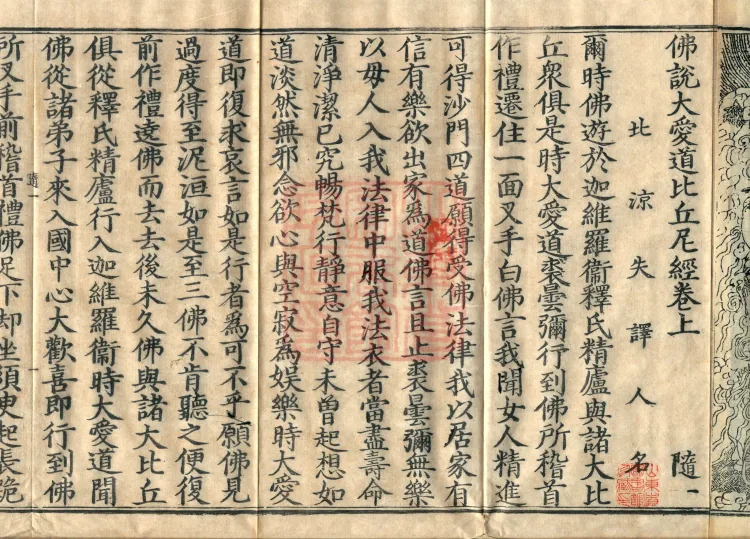 佛說大愛道比丘尼經卷上 隨一
比涼失譯人名
爾時佛遊於迦維羅衞釋氏精廬與諸大比
丘衆俱是時大愛道裘曇彌行到佛所稽首
作禮還住一面叉手白佛言我聞女人精進
可得沙門四道願得受佛法律我以居家有
信有樂欲出家爲道佛言且止裘曇彌無樂
以毋人入我法律中服我法衣者當盡壽命
清淨潔已究暢梵行靜意自守未曾起想如
道淡然無邪念欲心與空寂爲娯樂時大愛
道即復求哀言如是行者爲可不乎願佛見
過度得至泥洹如是至三佛不肯聽之便復
前作禮遶佛而去去後未久佛與諸大比丘
俱從釋氏精廬行入迦維羅衞時大愛道聞
佛從諸弟子來入國中心大歡喜即行到佛
隨一
所叉手前稽首禮佛足下却坐須臾起長跪